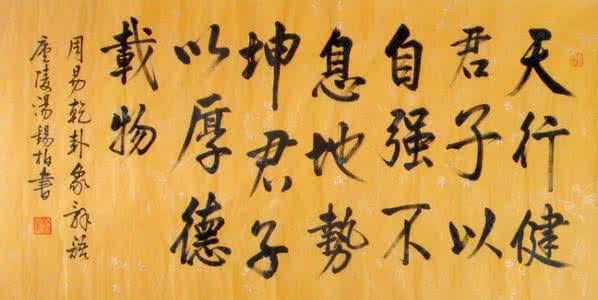 天行健
君子以
自强不
息地勢
坤君子
以厚德
載物
周易乾卦象辞語
庐陵湯錫柏書